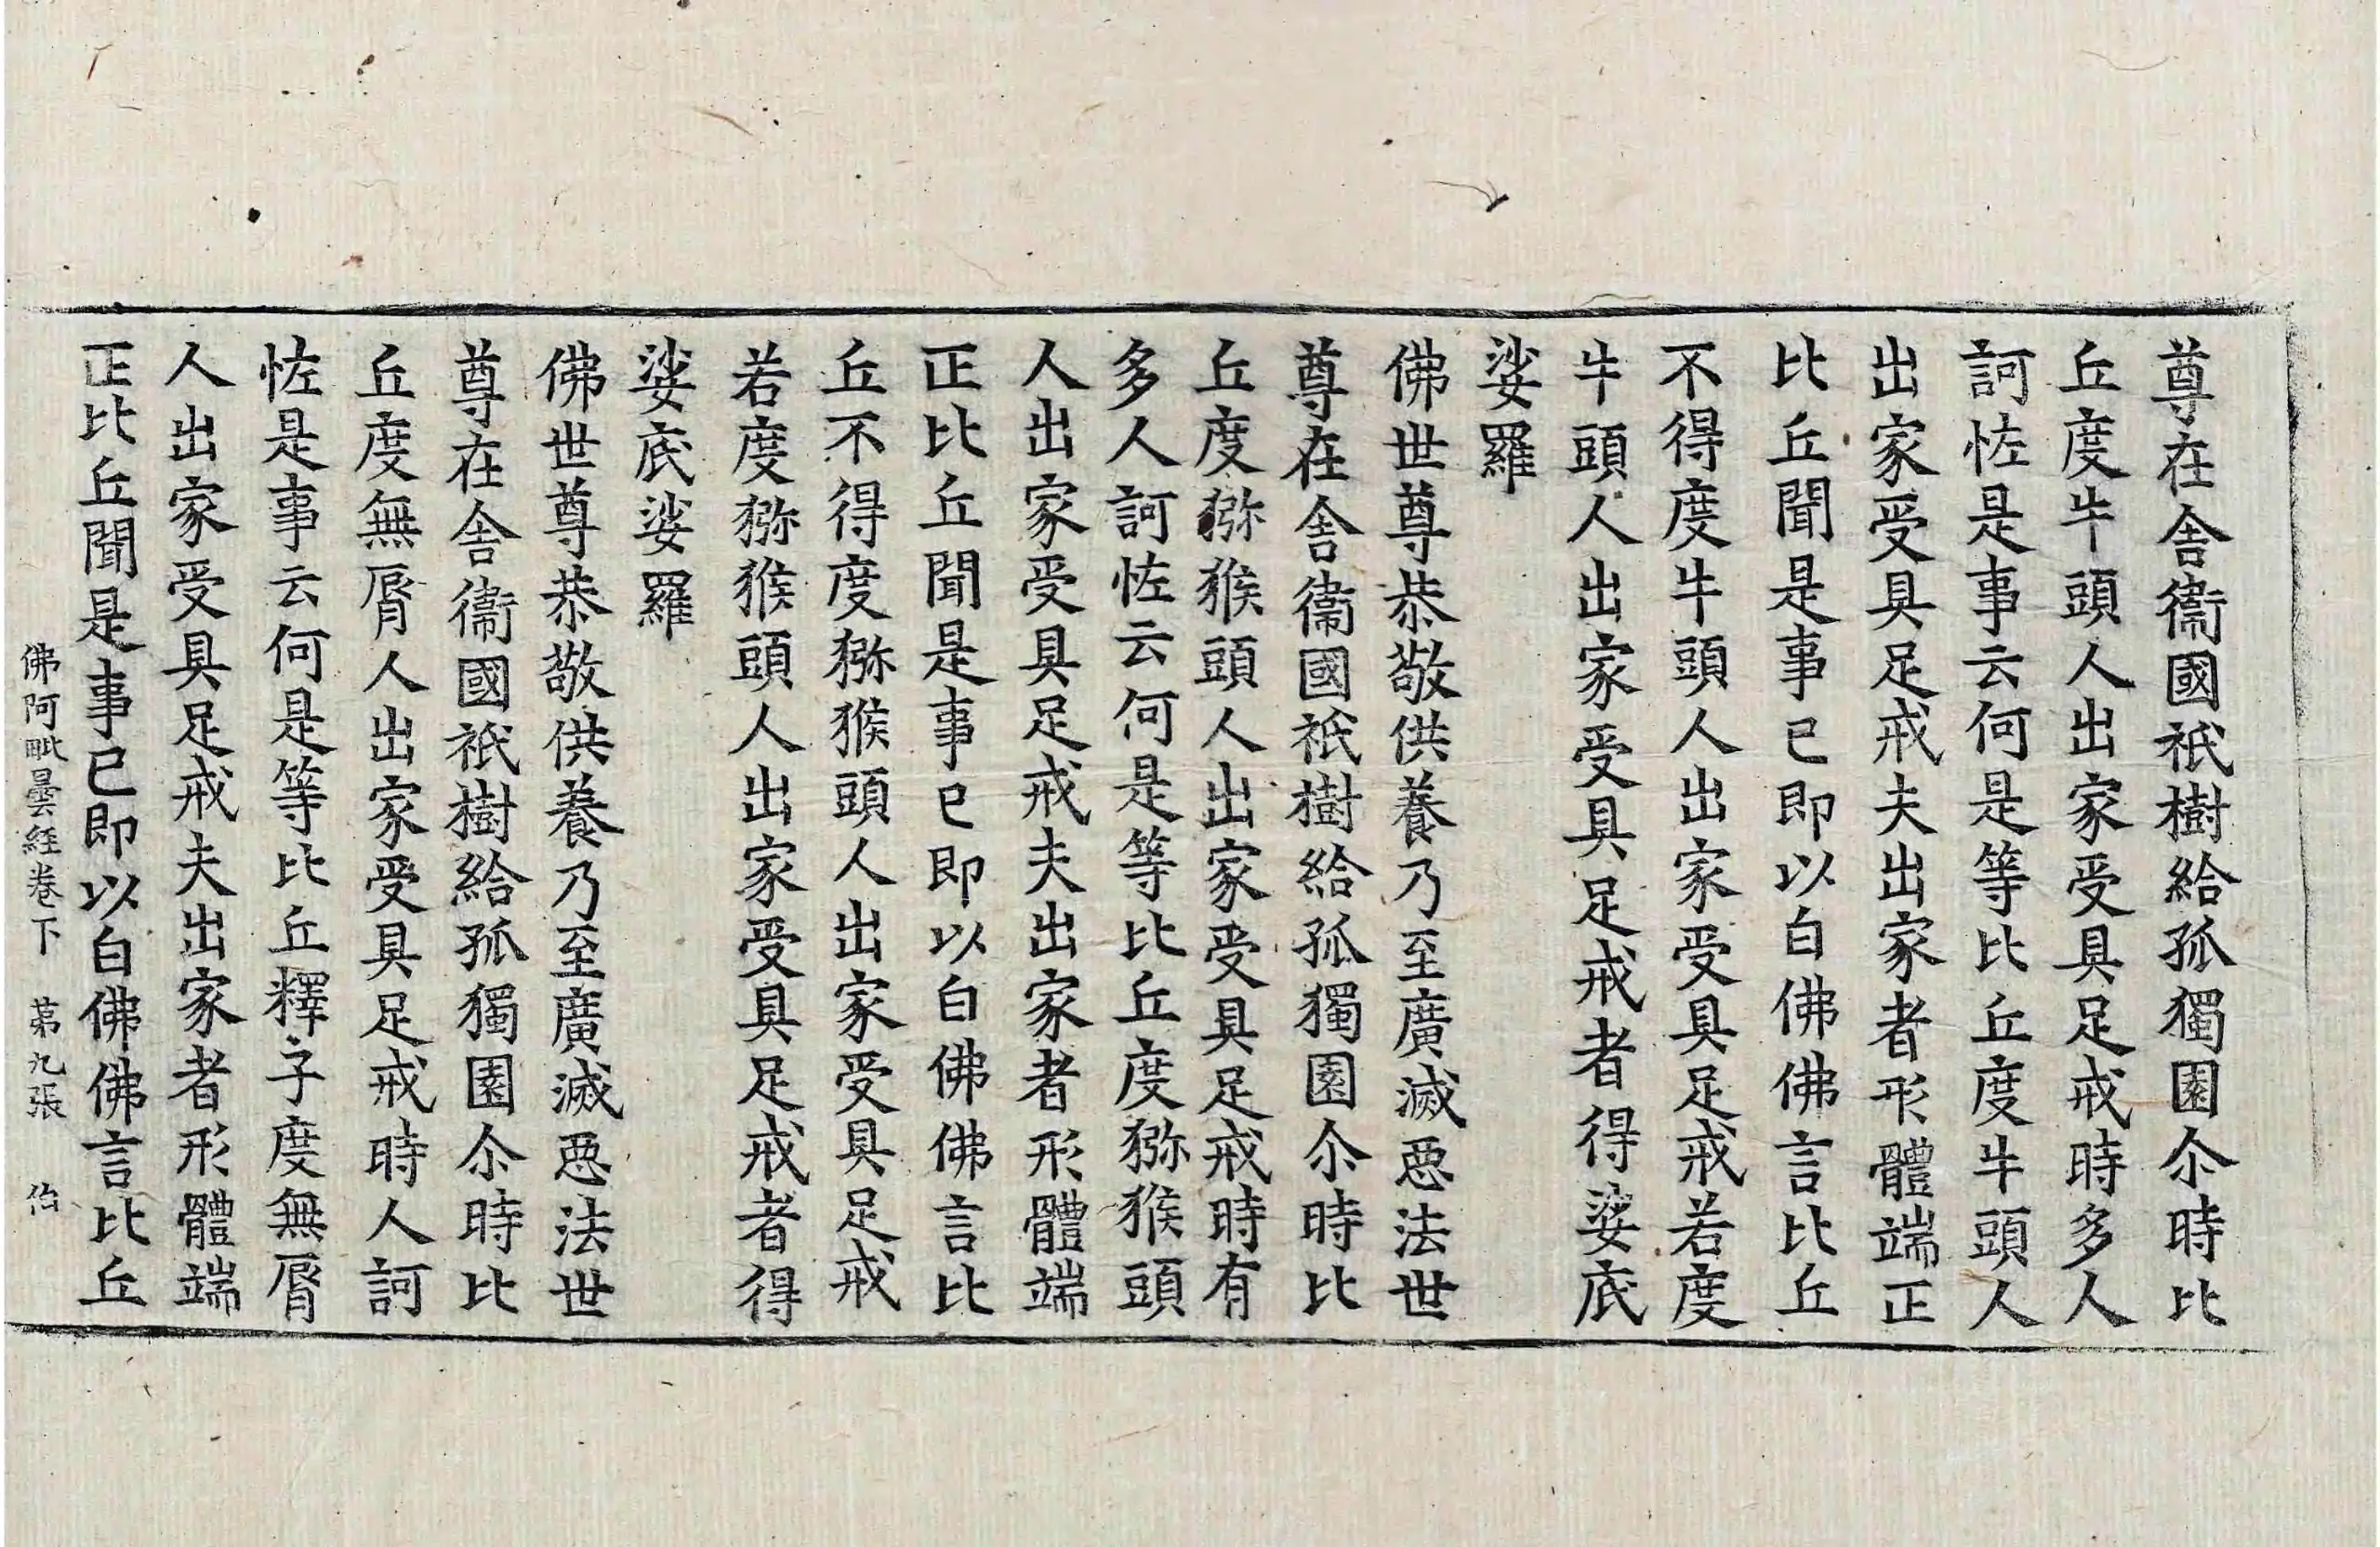 尊在舎衞國祇樹給孤獨園尒時比
丘度牛頭人出家受具足戒時多人
訶恠是事云何是等比丘度牛頭人
出家受具足戒夫出家者形體端正
比丘聞是事已即以白佛佛言比丘
不得度牛頭人出家受具足戒若度
牛頭人出家受具足戒者得娑底
娑羅
佛世尊恭敬供養乃至廣滅惡法世
尊在舎衞國祇樹給孤獨園尒時比
丘度猕猴頭人出家受具足戒時有
多人訶恠云何是等比丘度猕猴頭
人出家受具足戒夫出家者形體端
正比丘聞是事已即以白佛佛言比
丘不得度猕猴頭人出家受具足戒
若度猕猴頭人出家受具足戒者得
娑底娑羅
佛世尊恭敬供養乃至廣滅惡法世
尊在舎衞國祇樹給孤獨園尒時比
丘度無脣人出家受具足戒時人訶
恠是事云何是等比丘釋子度無脣
人出家受具足戒夫出家者形體端
正比丘聞是事已即以白佛佛言比丘
佛阿毗曇経卷下 苐九張